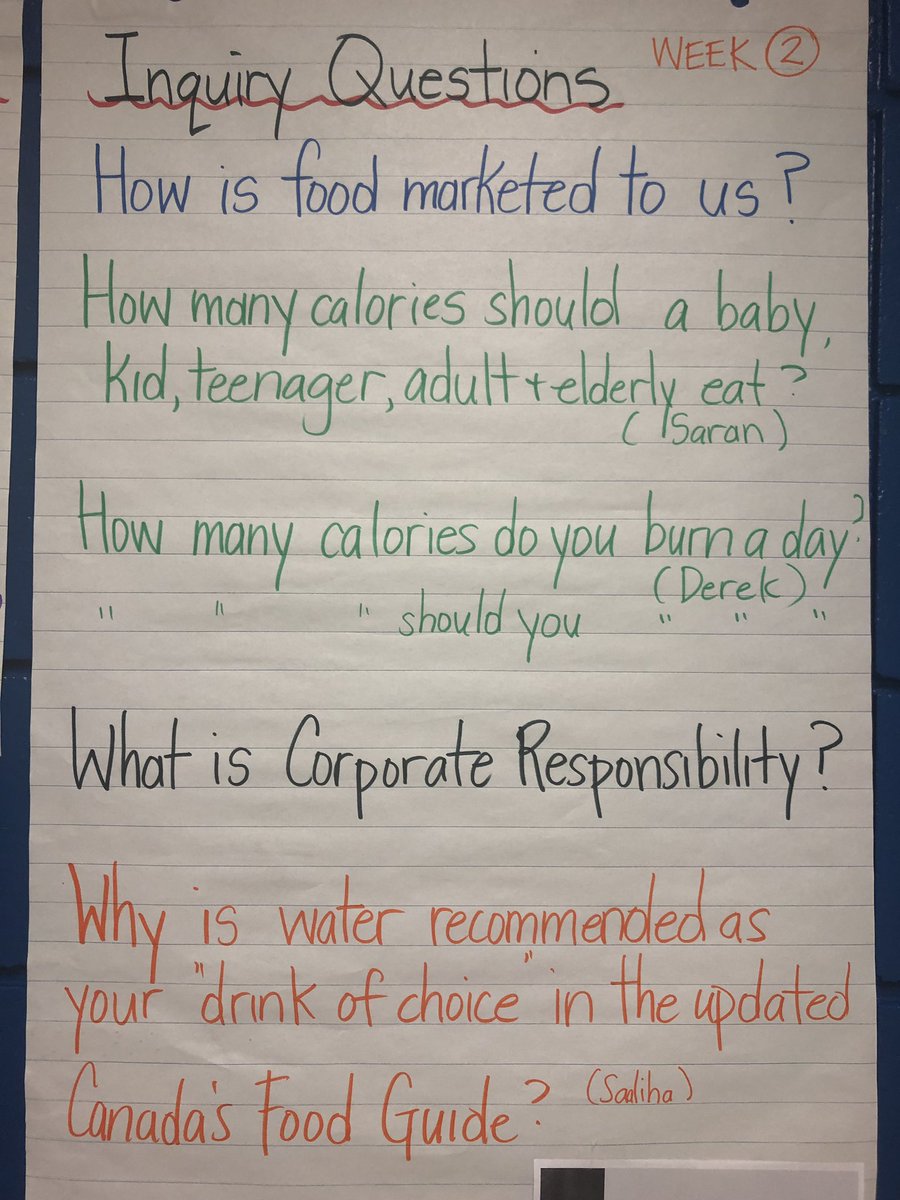 Inquiry Questions WEEK 2
How is food marketed to us?
How many calories should a baby,
Kid, teenager, adult + elderly eat?
(Saran)
How many calories do you burn a day?
(Derek)
" " " should you " " "
What is Corporate Responsibility?
Why is water recommended as
your "drink of choice" in the updated
Canada's Food Guide? (Saliha)